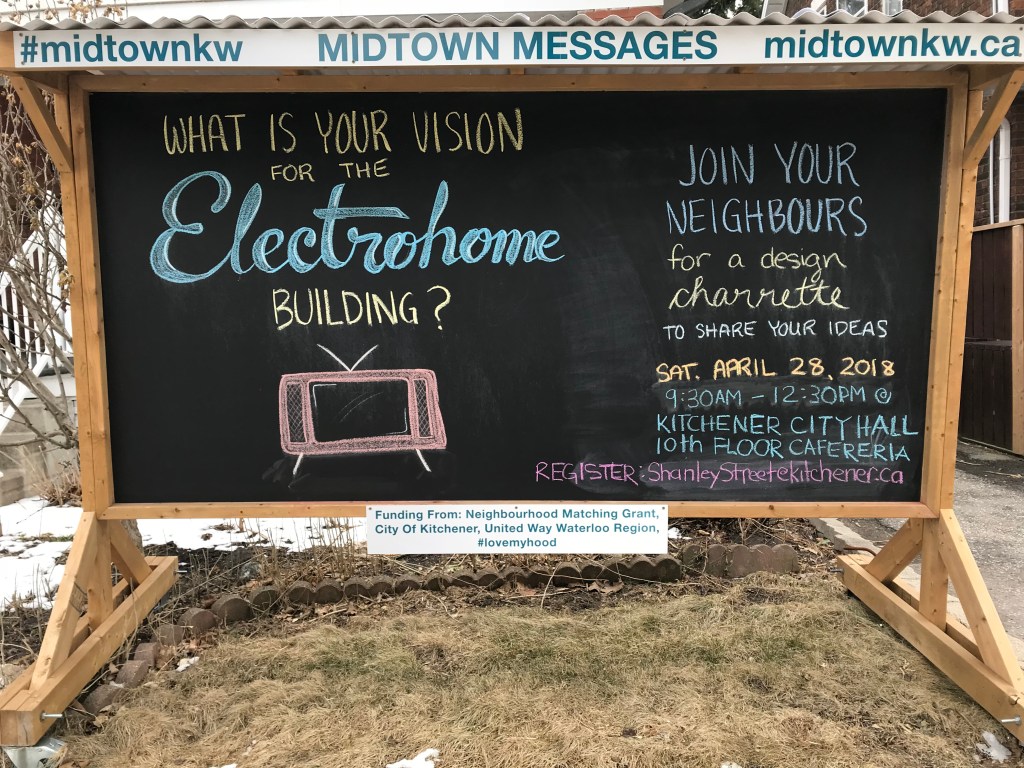 #midtownkw MIDTOWN MESSAGES midtownkw.ca
WHAT IS YOUR VISION
FOR THE
Electrohome
BUILDING?
JOIN YOUR
NEIGHBOURS
for a design
charrette
TO SHARE YOUR IDEAS
SAT. APRIL 28, 2018
9:30AM - 12:30PM @
KITCHENER CITY HALL
10th FLOOR CAFERERIA
REGISTER: ShanleyStreet@kitchener.ca
Funding From: Neighbourhood Matching Grant,
City Of Kitchener, United Way Waterloo Region,
#lovemyhood